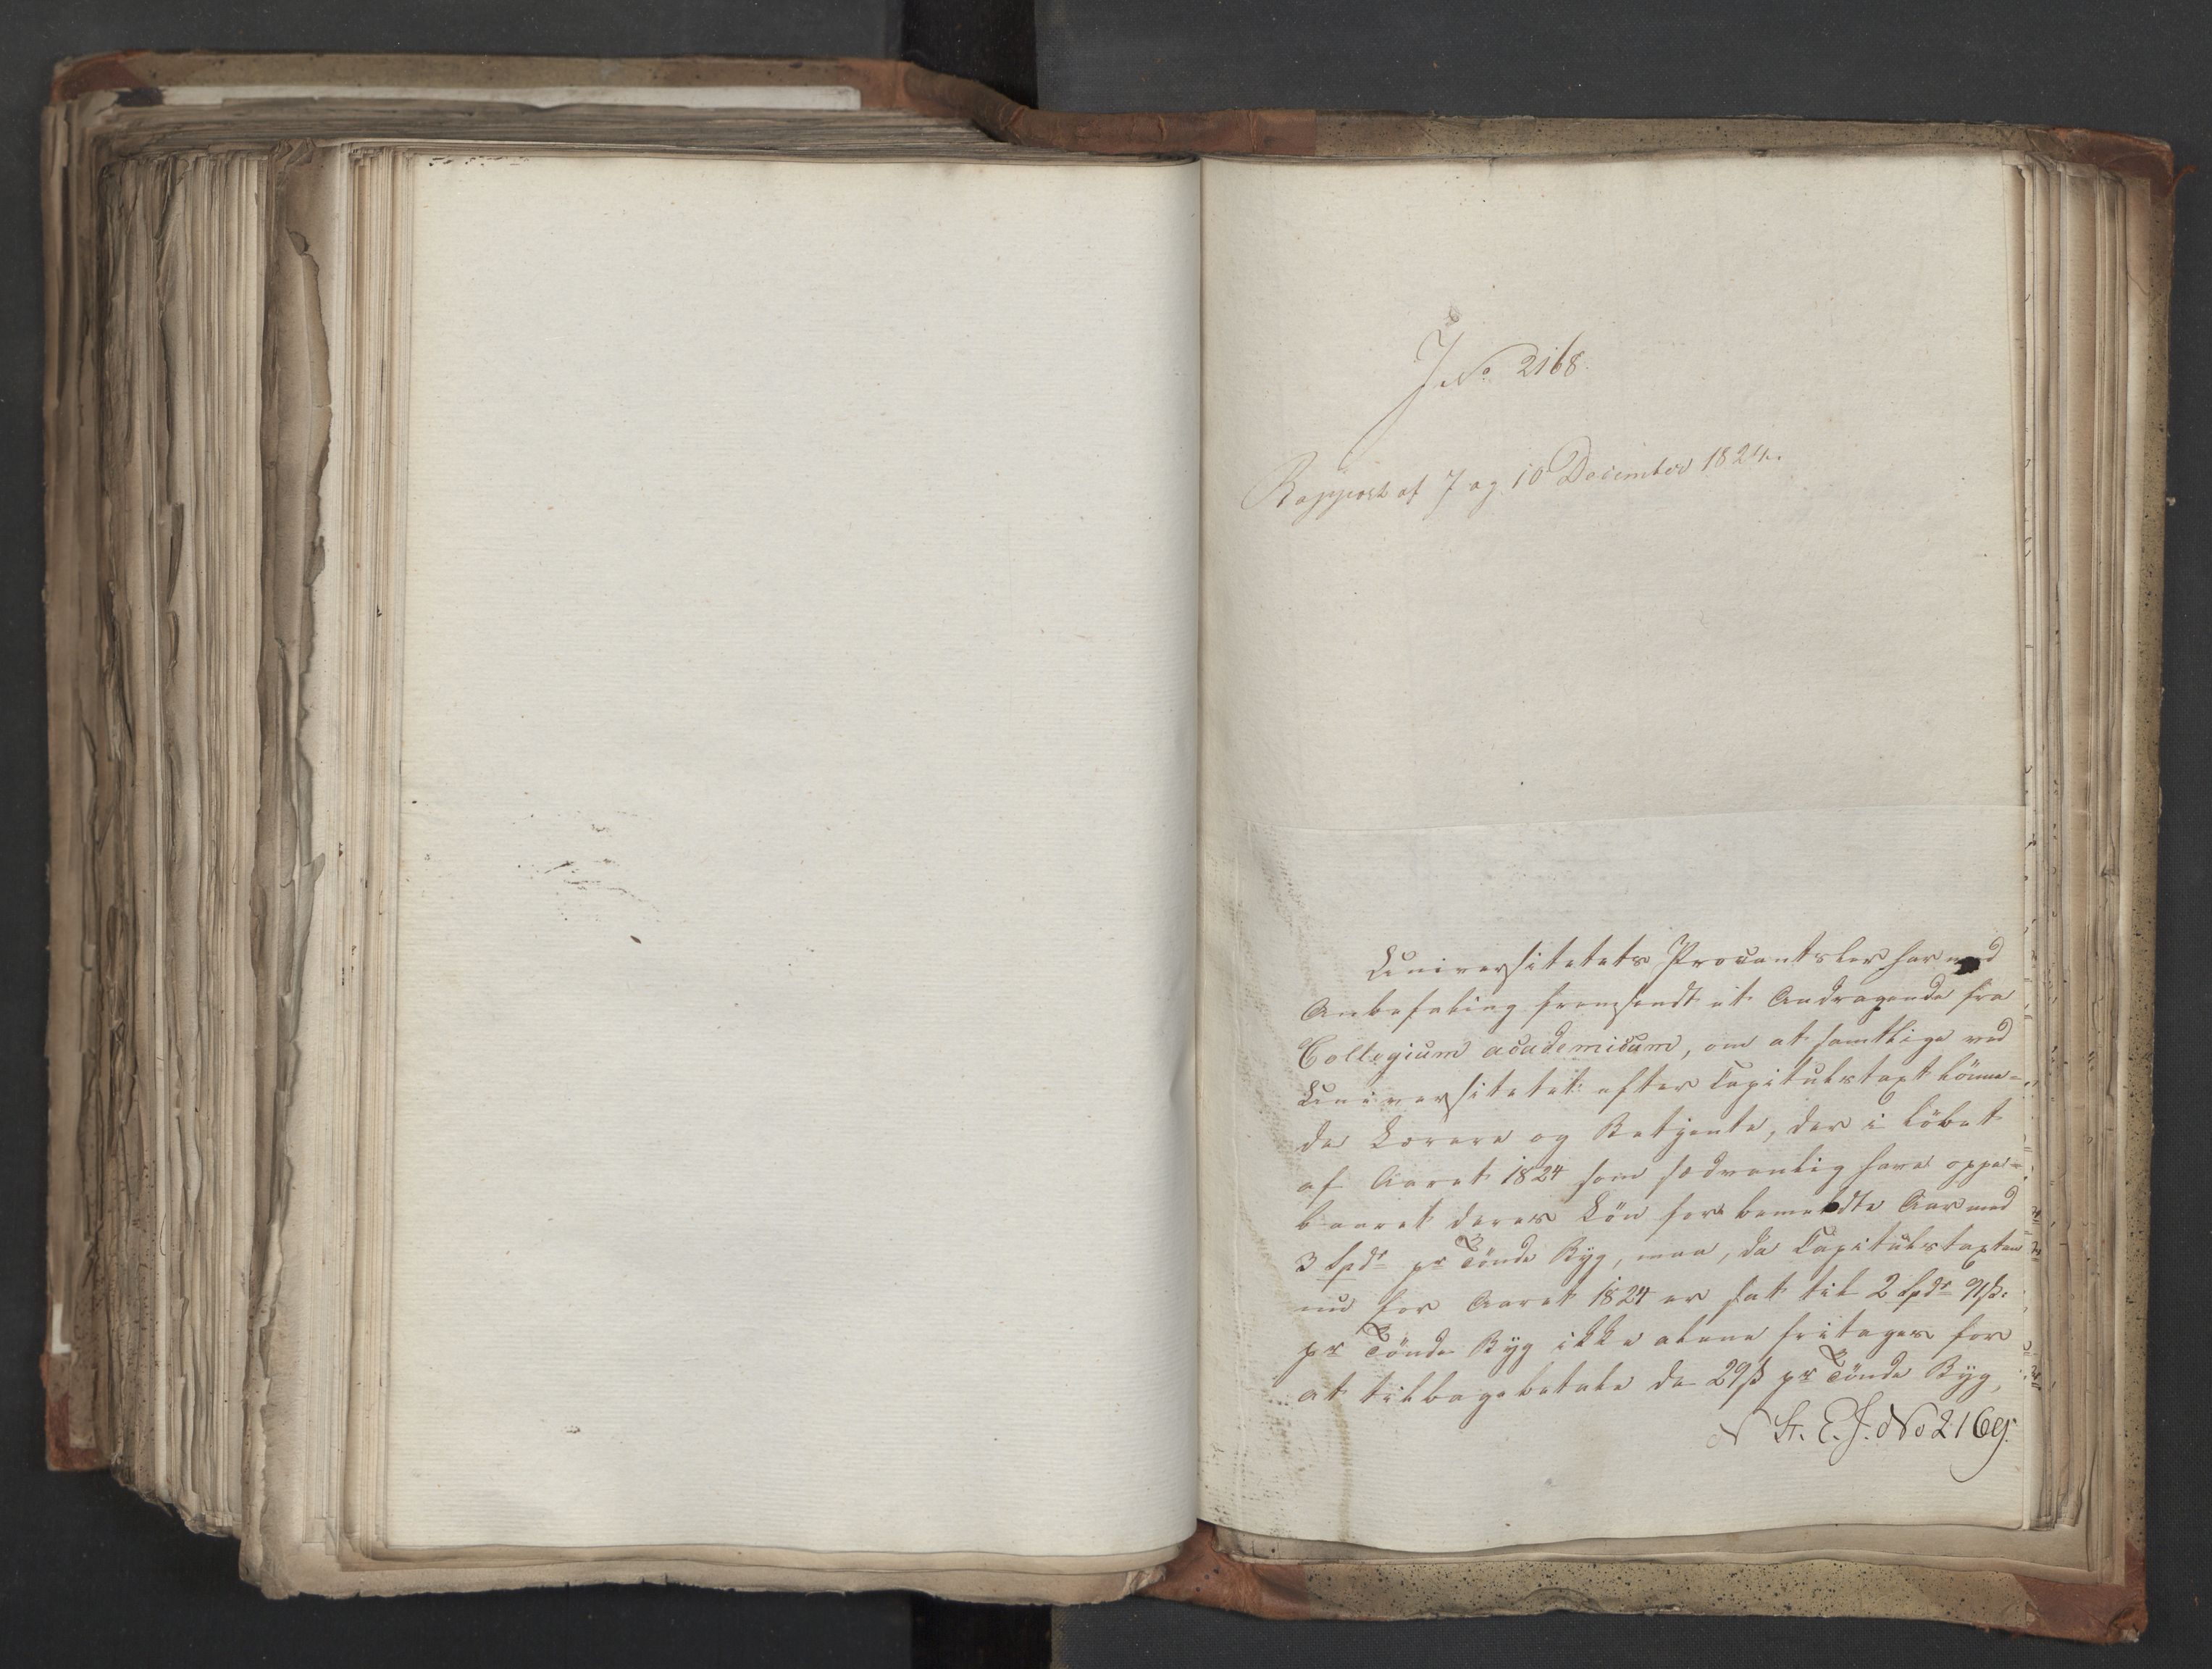 J No 2168.
Rapport af 7 og 10 December 1824.
Universitetets Procantsler har med
Anbefaling fremsendt et Andragende fra
Collegium academicum, om at samtlige ved
Universitetet efter Capitulstaxt lønne=
de Lærere og Betjente, der i Løbet
af Aaret 1824 som sædvanlig have oppe=
baaret deres Løn for bemeldte Aar med
3 Spdr pr Tønde Byg, maa, da Capitulstaxten
nu for Aaret 1824 er sat til 2 Spdr 91 ß.
pr Tønde Byg ikke alene fritages for
at tilbagebetale de 29 ß pr Tønde Byg,
N St. E. J. No 2169.